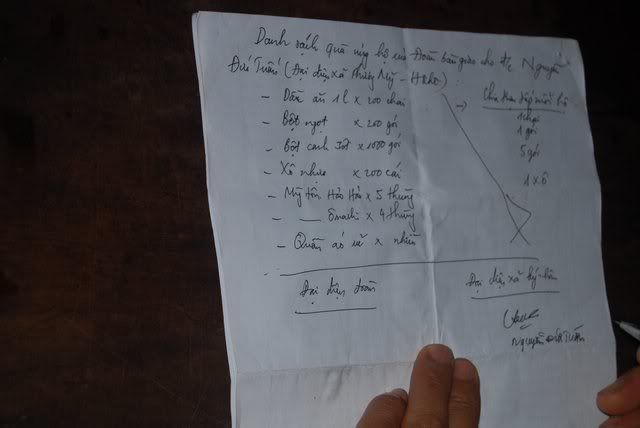 Danh sách quà ủng hộ của Đoàn bàn giao cho đ/c Nguyễn
Đức Tuấn (Đại diện xã Phương Mỹ - HKhê)
- Dầu ăn 1l x 200 chai
- Bột ngọt x 200 gói
- Bột canh Iot x 1000 gói
- Xô nhựa x 200 cái
- Mỳ tôm Hảo Hảo x 5 thùng
- Omachi x 4 thùng
- Quần áo cũ x nhiều
→ Chia theo mỗi hộ
1 chai
1 gói
5 gói
1 xô
Đại diện đoàn
Đại diện xã ký nhận
Nguyễn Đức Tuấn